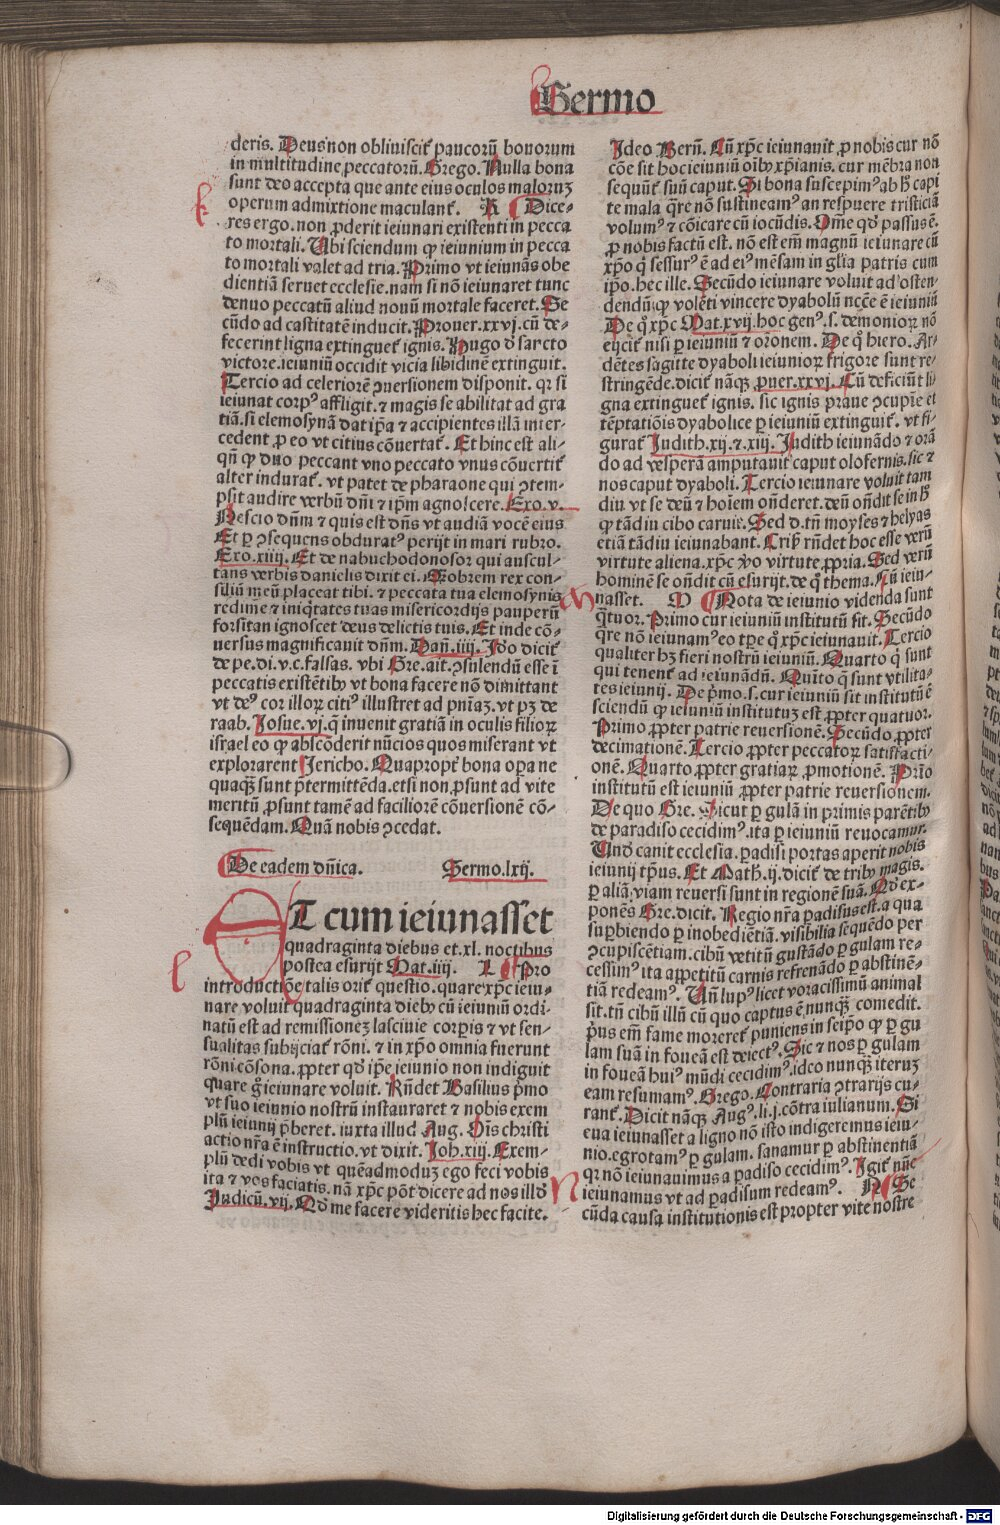 Sermo
deris. Deus non obliuiscit̃ paucorũ bonorum
in multitudine peccatorũ. Grego. Nulla bona
sunt deo accepta que ante eius oculos maloruꝫ
operum admixtione maculant̃. K Dice-
res ergo. non ꝓderit ieiunari existenti in pecca
to mortali. Ubi sciendum ꝙ ieiunium in pecca
to mortali valet ad tria. Primo vt ieiunãs obe
dientiã seruet ecclesie. nam si nõ ieiunaret tunc
denuo peccatũ aliud nouũ mortale faceret. Se
cũdo ad castitatẽ inducit. Prouer.xxvj. cũ de-
fecerint ligna extinguet̃ ignis. Hugo d̃ sancto
victore. ieiuniũ occidit vicia libidinẽ extinguit.
Tercio ad celeriorẽ ꝯuersionem disponit. qꝛ si
ieiunat corpꝰ affligit. ⁊ magis se abilitat ad gra
tiã. si elemosynã dat ip̃a ⁊ accipientes illã inter-
cedent ꝓ eo vt citius cõuertat̃. Et hinc est ali-
qñ ꝙ duo peccant vno peccato vnus cõuertit̃
alter indurat̃. vt patet de pharaone qui ꝯtem-
psit audire verbũ dñi ⁊ ip̃m agnoscere. Exo.v.
Nescio dñm ⁊ quis est dñs vt audiã vocẽ eius
Et ꝑ ꝯsequens obduratꝰ perijt in mari rubro.
Exo.xiiij. Et de nabuchodonosor qui auscul-
tans verbis danielis dixit ei. Quobrem rex con-
siliũ meũ placeat tibi. ⁊ peccata tua elemosynis
redime ⁊ iniq̃tates tuas misericordijs pauperũ
forsitan ignoscet deus delictis tuis. Et inde cõ-
uersus magnificauit dñm. Dañ.iiij. Jdo dicit̃
de pe.di.v.c.falsas. vbi Gre. ait. ꝯsulendũ esse ĩ
peccatis existẽtibꝰ vt bona facere nõ dimittant
vt deꝰ cor illoꝝ citiꝰ illustret ad pñiaꝫ. vt pꝫ de
raab. Josue.vj. q̃ inuenit gratiã in oculis filioꝝ
israel eo ꝙ abscõderit nũcios quos miserant vt
explorarent Jericho. Quapropt̃ bona opa ne
quaqꝫ sunt p̃termittẽda. etsi non ꝓsunt ad vite
meritũ ꝓsunt tamẽ ad faciliorẽ cõuersionẽ cõ-
sequẽdam. Quã nobis ꝯcedat.
De eadem dñica. Sermo.lxij.
ET cum ieiunasset
quadraginta diebus et.xl. noctibus
postea esurijt Mat.iiij. L Pro
introductiõe talis orit̃ questio. quare xp̃c ieiu-
nare voluit quadraginta diebꝰ cũ ieiuniũ ordi-
natũ est ad remissionez lasciuie corpis ⁊ vt sen-
sualitas subijciat̃ rõni. ⁊ in xp̃o omnia fuerunt
rõni cõsona. ꝓpter qd̃ ip̃e ieiunio non indiguit
quare g̃ ieiunare voluit. Rñdet Basilius p̃mo
vt suo ieiunio nostrũ instauraret ⁊ nobis exem
plũ ieiunij p̃beret. iuxta illud Aug. Oĩs christi
actio nr̃a ẽ instructio. vt dixit. Joh.xiij. Exem-
plũ dedi vobis vt quẽadmoduꝫ ego feci vobis
ita ⁊ vos faciatis. nã xp̃c põt dicere ad nos illd̃
Judicũ.vij. Qd̃ me facere videritis hec facite.
Jdeo Berñ. Cũ xp̃c ieiunauit ꝓ nobis cur nõ
cõe sit hoc ieiuniũ oĩbꝰ xp̃ianis. cur mẽbra non
sequũt̃ suũ caput. Si bona suscepimꝰ ab h̃ capi
te mala q̃re nõ sustineamꝰ an respuere tristiciã
volumꝰ ⁊ cõicare cũ iocũdis. Om̃e qd̃ passus ẽ.
ꝓ nobis factũ est. nõ est em̃ magnũ ieiunare cũ
xp̃o q̃ sessurꝰ ẽ ad eiꝰ mẽsam in gl̃ia patris cum
ip̃o. hec ille. Secũdo ieiunare voluit ad osten-
dendũ ꝙ volẽti vincere dyabolũ nc̃cẽ ẽ ieiuniũ
De q̃ xp̃c Mat.xvij. hoc genꝰ.s.demonioꝝ nõ
eijcit̃ nisi ꝑ ieiuniũ ⁊ or̃onem. De q̃ hiero. Ar-
dẽtes sagitte dyaboli ieiunioꝝ frigore sunt re-
stringẽde. dicit̃ nãqꝫ ꝓuer.xxvj. Cũ deficiũt li
gna extinguet̃ ignis. sic ignis praue ꝯcupiẽ et
tẽptatiõis dyabolice ꝑ ieiuniũ extinguit̃. vt fi-
gurat̃ Judith.xij.⁊.xiij. Judith ieiunãdo ⁊ orã
do ad vesperã amputauit caput olofernis. sic ⁊
nos caput dyaboli. Tercio ieiunare voluit tam
diu vt se deũ ⁊ hoĩem oñderet. deũ oñdit se in h̃
ꝙ tãdiu cibo caruit. Sed d.tñ moyses ⁊ helyas
etiã tãdiu ieiunabant. Crisꝑ rñdet hoc esse verũ
virtute aliena. xp̃c ṽo virtute ꝓpria. Sed verũ
hominẽ se oñdit cũ esurijt. de q̃ thema. Cũ ieiu-
nasset. M Nota de ieiunio videnda sunt
q̃tuor. Primo cur ieiuniũ institutũ sit. Secũdo
q̃re nõ ieiunamꝰ eo tꝑe q̃ xp̃c ieiunauit. Tercio
qualiter hꝫ fieri nostrũ ieiuniũ. Quarto q̃ sunt
qui tenent̃ ad ieiunãdũ. Quĩto q̃ sunt vtilita-
tes ieiunij. De p̃mo.s.cur ieiuniũ sit institutũ ẽ
sciendũ ꝙ ieiuniũ institutuꝫ est ꝓpter quatuor.
Primo ꝓpter patrie reuersionẽ. Secũdo ꝓpter
decimationẽ. Tercio ꝓpter peccatoꝝ satisfacti-
onẽ. Quarto ꝓpter gratiaꝝ ꝓmotionẽ. Primo
institutũ est ieiuniũ ꝓpter patrie reuersionem.
De quo Gre. Sicut ꝑ gulã in primis parẽtibꝰ
de paradiso cecidimꝰ. ita ꝑ ieiuniũ reuocamur.
Und̃ canit ecclesia. ꝑadisi portas aperit nobis
ieiunij tp̃us. Et Math̃.ij. dicit̃ de tribꝰ magis.
ꝑ aliã viam reuersi sunt in regionẽ suã. Qd̃ ex-
ponẽs Gre. dicit. Regio nr̃a ꝑadisus est. a qua
suꝑbiendo ꝑ inobediẽtiã. visibilia sequẽdo per
ꝯcupiscẽtiam. cibũ vetitũ gustãdo ꝑ gulam re-
cessimꝰ ita appetitũ carnis refrenãdo ꝑ abstinẽ-
tiã redeamꝰ. Uñ lupꝰ licet voracissimũ animal
sit. tñ cibũ illũ cũ quo captus ẽ nunqꝫ comedit.
p̃us em̃ fame moreret̃ puniens in seip̃o ꝙ ꝑ gu
lam suã in foueã est deiectꝰ. Sic ⁊ nos ꝑ gulam
in foueã huiꝰ mũdi cecidimꝰ. ideo nunqꝫ iteruꝫ
eam resumamꝰ. Grego. Contraria ꝯtrarijs cu-
rant̃. Dicit nãqꝫ Augꝰ.li.j.cõtra iulianum. Si
eua ieiunasset a ligno nõ isto indigeremus ieiu-
nio. egrotamꝰ ꝑ gulam. sanamur ꝑ abstinentiã
qꝛ nõ ieiunauimus a ꝑadiso cecidimꝰ. Jgit̃ nũc
ieiunamus vt ad ꝑadisum redeamꝰ. N Se
cũda causa institutionis est propter vite nostre
Digitalisierung gefördert durch die Deutsche Forschungsgemeinschaft - DFG